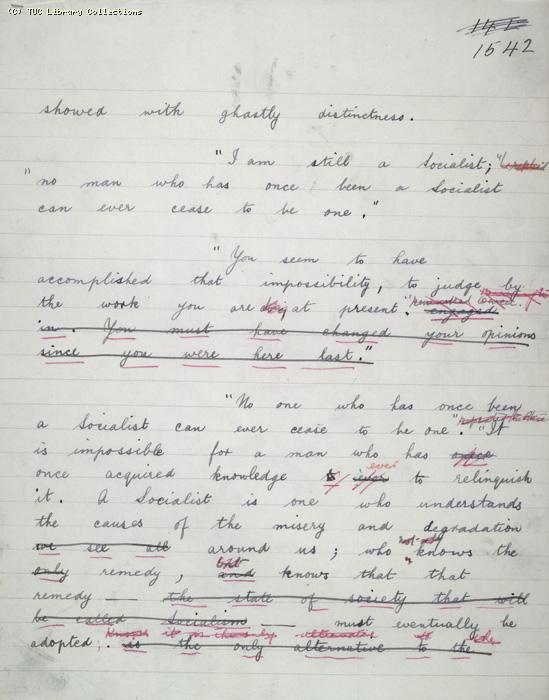 (C) TUC Library Collections
141
1542
showed with ghastly distinctness.
"I am still a Socialist;"
"no man who has once been a Socialist
can ever cease to be one."
"You seem to have
accomplished that impossibility, to judge by
the work you are doing at present." engaged
in. You must have changed your opinions
since you were here last."
"No one who has once been
a Socialist can ever cease to be one". "It
is impossible for a man who has once
once acquired knowledge ever to relinquish
it. A Socialist is one who understands
the causes of the misery and degradation
we see all around us; who not only knows the
only remedy, but and knows that that
remedy — the state of society that will
be called Socialism — must eventually be
it is the only alternative
adopted: so the only alternative to the